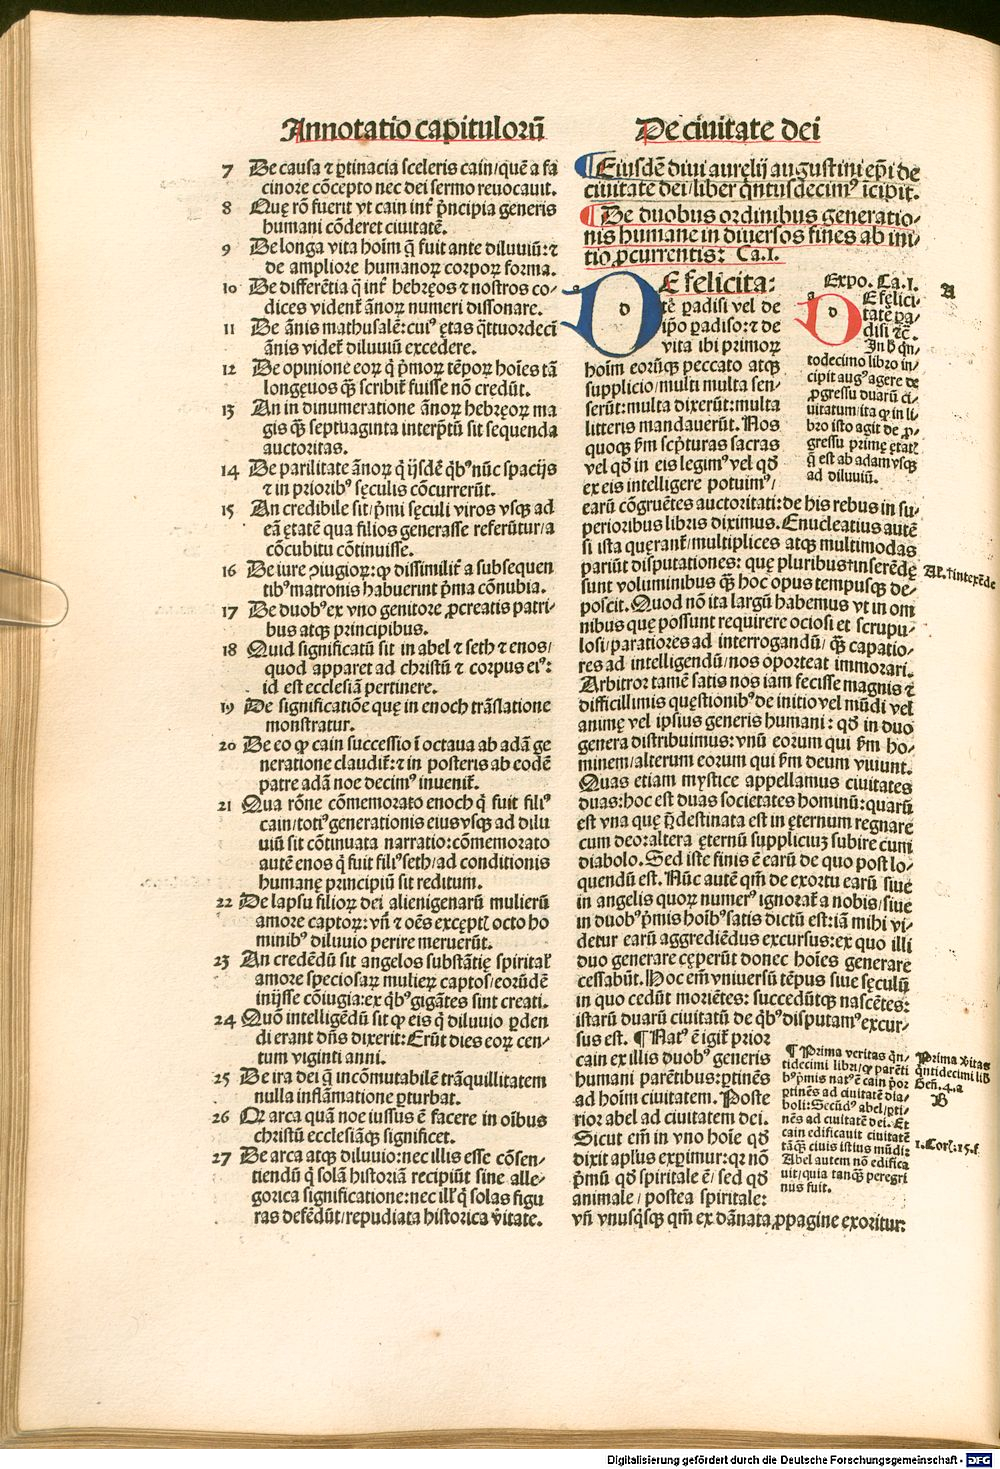 Annotatio capitulorũ
7 De causa ⁊ ꝑtinacia sceleris cain/quẽ a fa
cinore cõcepto nec dei sermo reuocauit.
8 Quę rõ fuerit vt cain int᷑ p̃ncipia generis
humani cõderet ciuitatẽ.
9 De longa vita hoĩm q̃ fuit ante diluuiũ:⁊
de ampliore humanoꝝ corpoꝝ forma.
10 De differẽtia q̃ int᷑ hebręos ⁊ nostros co-
dices vident᷑ ãnoꝝ numeri dissonare.
11 De ãnis mathusalẽ:cuiꝰ ętas q̃ttuordecĩ
ãnis videt᷑ diluuiũ excedere.
12 De opinione eoꝝ q̃ p̃moꝝ tẽpoꝝ hoĩes tã
longęuos q̃ꝫ scribit᷑ fuisse nõ credũt.
13 An in dinumeratione ãnoꝝ hebręoꝝ ma
gis q̃ꝫ septuaginta interp̃tũ sit sequenda
auctoritas.
14 De parilitate ãnoꝝ q̃ ijsdẽ q̃bꝰ nũc spacijs
⁊ in prioribꝰ sęculis cõcurrerũt.
15 An credibile sit/p̃mi sęculi viros vsqꝫ ad
eã ętatẽ qua filios generasse referũtur/a
cõcubitu cõtinuisse.
16 De iure ꝯiugioꝝ:ꝙ dissimilit᷑ a subsequen
tibꝰ matronis habuerint p̃ma cõnubia.
17 De duobꝰ ex vno genitore ꝓcreatis patri-
bus atqꝫ principibus.
18 Quid significatũ sit in abel ⁊ seth ⁊ enos/
quod apparet ad christũ ⁊ corpus eiꝰ:
id est ecclesiã pertinere.
19 De significatiõe quę in enoch trãslatione
monstratur.
20 De eo ꝙ cain successio ĩ octaua ab adã ge
neratione claudit᷑:⁊ in posteris ab eodẽ
patre adã noe decimꝰ inuenit᷑.
21 Qua rõne cõmemorato enoch q̃ fuit filiꝰ
cain/totiꝰ generationis eius vsqꝫ ad dilu
uiũ sit cõtinuata narratio:cõmemorato
autẽ enos q̃ fuit filiꝰ seth/ad conditionis
humanę principiũ sit reditum.
22 De lapsu filioꝝ dei alienigenarũ mulierũ
amore captoꝝ: vñ ⁊ oẽs exceptꝭ octo ho
minibꝰ diluuio perire meruerũt.
23 An credẽdũ sit angelos substãtię spiritaꝉ
amore speciosaꝝ mulieꝝ captos/eorũdẽ
inijsse cõiugia:ex q̃bꝰ gigãtes sint creati.
24 Quõ intelligẽdũ sit ꝙ eis q̃ diluuio ꝑden
di erant dñs dixerit: Erũt dies eoꝝ cen-
tum viginti anni.
25 De ira dei q̃ incõmutabilẽ trãquillitatem
nulla inflãmatione ꝑturbat.
26 Qꝝ arca quã noe iussus ẽ facere in oĩbus
christũ ecclesiãqꝫ significet.
27 De arca atqꝫ diluuio:nec illis esse cõsen-
tiendũ q̃ solã historiã recipiũt sine alle-
gorica significatione:nec ilꝉ q̃ solas figu
ras defẽdũt/repudiata historica ṽitate.
De ciuitate dei
¶ Eiusdẽ diui aurelij augustini ep̃i de
ciuitate dei/liber q̃ntusdecimꝰ ĩcipit.
¶ De duobus ordinibus generatio-
nis humane in diuersos fines ab ini-
tio ꝓcurrentis: Ca.I.
DE felicita:
tẽ ꝑadisi vel de
ip̃o ꝑadiso:⁊ de
vita ibi primoꝝ
hoĩm eorũqꝫ peccato atqꝫ
supplicio/multi multa sen-
serũt:multa dixerũt:multa
litteris mandauerũt. Nos
quoqꝫ ẜm scp̃turas sacras
vel qð in eis legimꝰ vel qð
ex eis intelligere potuimꝰ/
earũ cõgruẽtes auctoritati:de his rebus in su-
perioribus libris diximus. Enucleatius autẽ
si ista quęrant᷑/multiplices atqꝫ multimodas
pariũt disputationes: quę pluribus †inserẽdę
sunt voluminibus q̃ꝫ hoc opus tempusqꝫ de-
poscit. Quod nõ ita largũ habemus vt in om̃
nibus quę possunt requirere ociosi et scrupu-
losi/paratiores ad interrogandũ/ q̃ꝫ capatio-
res ad intelligendũ/nos oporteat immorari.
Arbitror tamẽ satis nos iam fecisse magnis ⁊
difficillimis quęstionibꝰ de initio vel mũdi vel
animę vel ipsius generis humani: qð in duo
genera distribuimus: vnũ eorum qui ẜm ho-
minem/alterum eorum qui ẜm deum viuunt.
Quas etiam mystice appellamus ciuitates
duas:hoc est duas societates hominũ:quarũ
est vna que p̃destinata est in ęternum regnare
cum deo:altera ęternũ suppliciuꝫ subire cum
diabolo. Sed iste finis ẽ earũ de quo post lo-
quendũ est. Nũc autẽ qm̃ de exortu earũ siue
in angelis quoꝝ numerꝰ ignorat᷑ a nobis/siue
in duobꝰ p̃mis hoĩbꝰ satis dictũ est:iã mihi vi-
detur earũ aggrediẽdus excursus:ex quo illi
duo generare cęperũt donec hoĩes generare
cessabũt. Hoc em̃ vniuersũ tẽpus siue sęculũ
in quo cedũt moriẽtes: succedũtqꝫ nascẽtes:
istarũ duarũ ciuitatũ de q̃bꝰ disputamꝰ excur-
sus est. ¶ Natꝰ ẽ igit᷑ prior
cain ex illis duobꝰ generis
humani parẽtibus:ꝑtinẽs
ad hoĩm ciuitatem. Poste
rior abel ad ciuitatem dei.
Sicut em̃ in vno hoĩe qð
dixit apl̃us exꝑimur:qꝛ nõ
p̃mũ qð spiritale ẽ/ sed qð
animale / postea spiritale:
vñ vnusq̃sqꝫ qm̃ ex dãnata ꝓpagine exoritur:
Expo. Ca.I.
DE felici-
tatẽ ꝑa-
disi ⁊c̃.
In ħ q̃n-
todecimo libro in-
cipit augꝰ agere de
ꝓgressu duarũ ci-
uitatum/ita ꝙ in li-
bro isto agit de ꝓ-
gressu prime ętatꝭ
q̃ est ab adam vsqꝫ
ad diluuiũ.
A
Al. †intexẽde
¶ Prima veritas q̃n-
tidecimi libri/ꝙ parẽti
bꝰ p̃mis natꝰ ẽ cain p̃or
ꝑtinẽs ad ciuitatẽ dia-
boli: Secũdꝰ abel/ꝑti-
nẽs ad ciuitatẽ dei. Et
cain edificauit ciuitatẽ
tãqꝫ ciuis istius mũdi:
Abel autem nõ edifica
uit/quia tanqꝫ peregri
nus fuit.
Prima ṽitas
q̃ntidecimi lib̃
Geñ.4.a
B
1.Corĩ.15.f
Digitalisierung gefördert durch die Deutsche Forschungsgemeinschaft - DFG